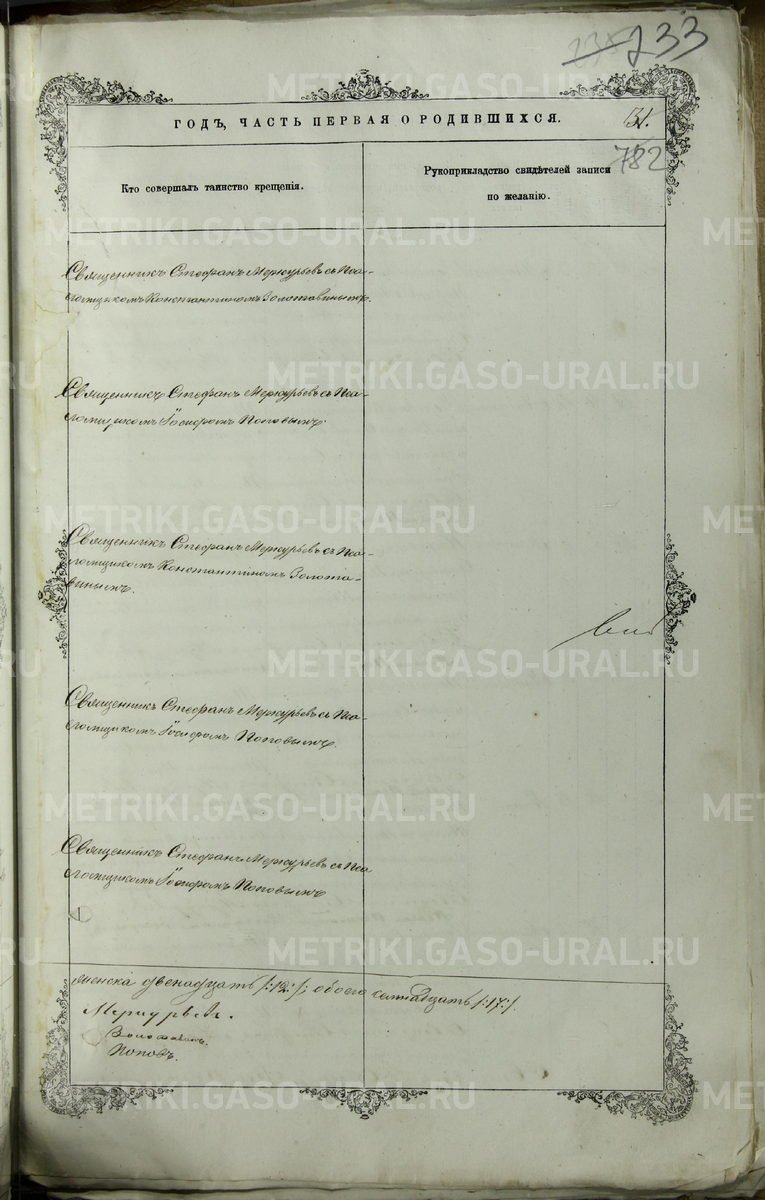 233
ГОДЪ, ЧАСТЬ ПЕРВАЯ О РОДИВШИХСЯ.
131.
782
Кто совершалъ таинство крещенія.
Рукоприкладство свидѣтелей записи
по желанію.
Священникъ Стефанъ Меркурьевъ съ Пса-
ломщикомъ Константиномъ Золотавинымъ.
Священникъ Стефанъ Меркурьевъ съ Пса-
ломщикомъ Іосифомъ Поповымъ.
Священникъ Стефанъ Меркурьевъ съ Пса-
ломщикомъ Константиномъ Золота-
винымъ.
Священникъ Стефанъ Меркурьевъ съ Пса-
ломщикомъ Іосифомъ Поповымъ.
Священникъ Стефанъ Меркурьевъ съ Пса
ломщикомъ Іосифомъ Поповымъ
женска двенадцать /:12:/, обоего семнадцать /:17:/.
Меркурьевъ.
Золотавинъ.
Поповъ.
METRIKI.GASO-URAL.RU